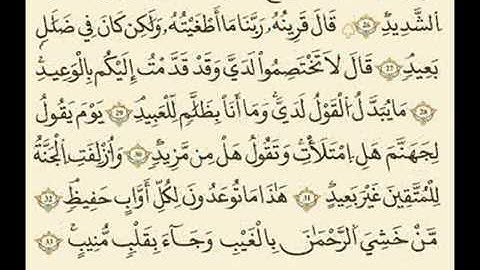 ٱلشَّدِيدِ ٢٦ قَالَ قَرِينُهُۥ رَبَّنَا مَآ أَطْغَيْتُهُۥ وَلَٰكِن كَانَ فِي ضَلَٰلِۭ
بَعِيدٖ ٢٧ قَالَ لَا تَخْتَصِمُواْ لَدَيَّ وَقَدْ قَدَّمْتُ إِلَيْكُم بِٱلْوَعِيدِ
٢٨ مَا يُبَدَّلُ ٱلْقَوْلُ لَدَيَّ وَمَآ أَنَا۠ بِظَلَّٰمٖ لِّلْعَبِيدِ ٢٩ يَوْمَ نَقُولُ
لِجَهَنَّمَ هَلِ ٱمْتَلَأْتِ وَتَقُولُ هَلْ مِن مَّزِيدٖ ٣٠ وَأُزْلِفَتِ ٱلْجَنَّةُ
لِلْمُتَّقِينَ غَيْرَ بَعِيدٍ ٣١ هَٰذَا مَا تُوعَدُونَ لِكُلِّ أَوَّابٍ حَفِيظٖ ٣٢
مَّنْ خَشِيَ ٱلرَّحْمَٰنَ بِٱلْغَيْبِ وَجَآءَ بِقَلْبٖ مُّنِيبٍ ٣٣